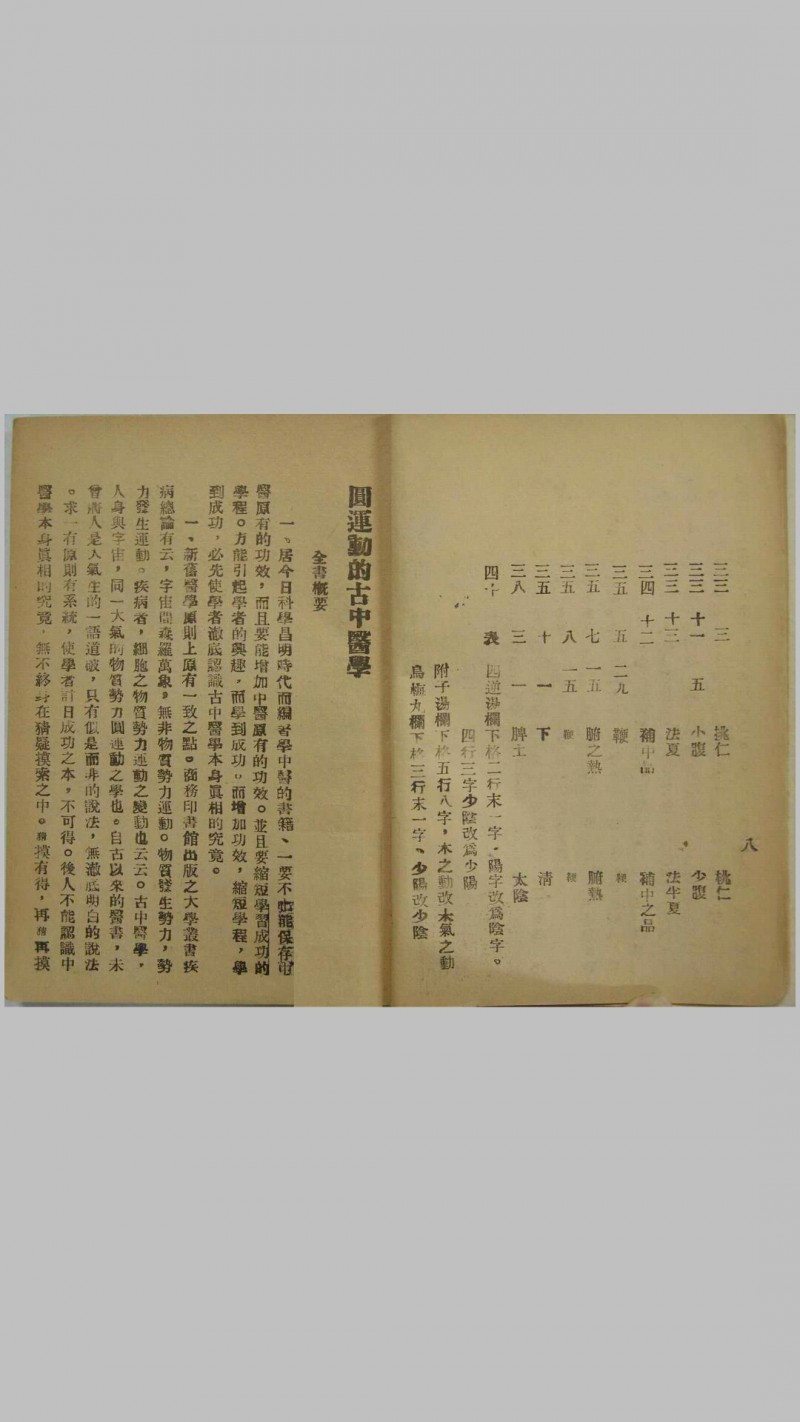 八
三三　三　桃仁　桃仁
三三　十一　五　小腹　少腹
三三　十三　法夏　法半夏
三四　十二　補中品　補中之品
三五　五　二九
三五　七　一五　腑之熱　腑熱
三五　八　一五
三五　十　一　下　淸
三八　三　一　脾土　太陰
四十　表　四逆湯欄下格二行末一字，陽字改爲陰字。
四行三字少陰改爲少陽
附子湯欄下格五行八字，木之動改木氣之動
烏梅丸欄下格三行末一字、少陽改少陰
圓運動的古中醫學
全書概要
一、居今日科學昌明時代而編著學中醫的書籍、一要不惟能保存中
醫原有的功效，而且要能增加中醫原有的功效。並且要縮短學習成功的
學程。方能引起學者的興趣，而學到成功。而增加功效，縮短學程，學
到成功，必先使學者澈底認識古中醫學本身眞相的究竟。
一、新舊醫學原則上原有一致之點。商務印書館出版之大學叢書疾
病總論有云，宇宙間森羅萬象，無非物質勢力運動。物質發生勢力，勢
力發生運動。疾病者，細胞之物質勢力運動之變動也云云。古中醫學，
人身與宇宙，同一大氣的物質勢力圓運動之學也。自古以來的醫書，未
曾將人是大氣生的一語道破，只有似是而非的說法，無澈底明白的說法
。求一有原則有系統，使學者計日成功之本，不可得。後人不能認識中
醫學本身眞相的究竟，無不終身在猜疑摸索之中。猜摸有得，再猜再摸